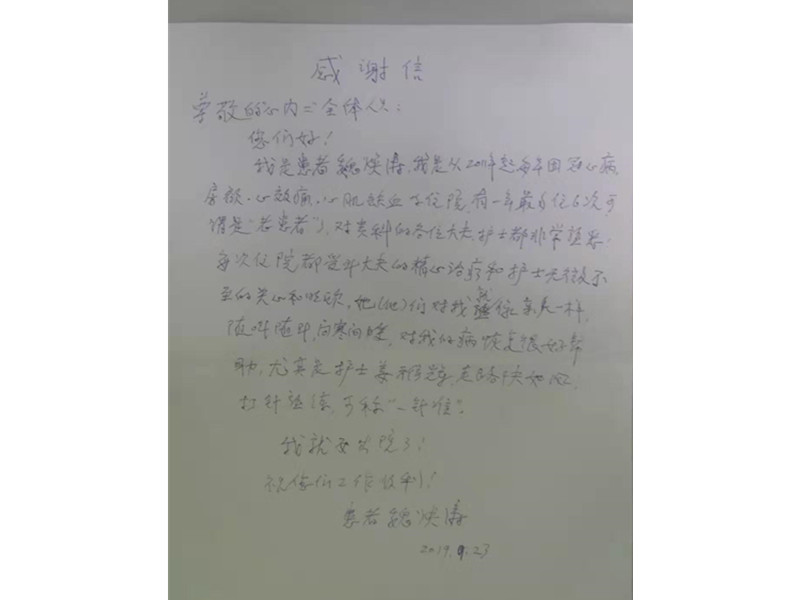 感谢信
尊敬的心内二全体人员:
您们好!
我是患者魏焕涛,我是从2011年起每年因冠心病,
房颤、心绞痛、心肌缺血等住院,有一年最多住6次可
谓是"老患者"了,对贵科的各位大夫,护士都非常熟悉
每次住院都是大夫的精心治疗和护士无微不
至的关心和照顾,她(他)们对我就像亲人一样,
随叫随到,问寒问暖,对我的病恢复很好帮
助,尤其是护士姜
打针 可称"一针准"。
我就要出院了!
祝你们工作顺利!
患者魏焕涛
2019.9.23